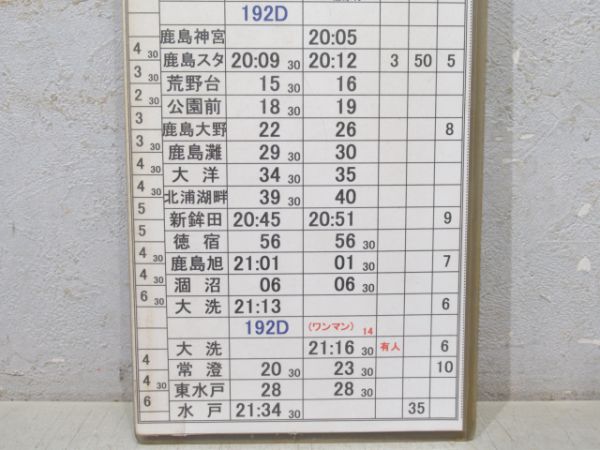 192D
鹿島神宮 20:05
4 30 鹿島スタ 20:09 30 20:12 3 50 5
3 30 荒野台 15 30 16
2 30 公園前 18 30 19
3 鹿島大野 22 26 8
3 30 鹿島灘 29 30 30
4 30 大洋 34 30 35
4 30 北浦湖畔 39 30 40
5 新鉾田 20:45 20:51 9
5 徳宿 56 56 30
4 30 鹿島旭 21:01 01 30 7
4 30 涸沼 06 06 30
6 30 大洗 21:13 6
192D (ワンマン) 14
大洗 21:16 30 有人 6
4 常澄 20 30 23 30 10
4 30 東水戸 28 28 30
6 水戸 21:34 30 35